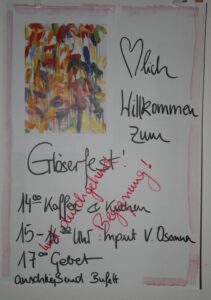 ♡lich
Willkommen
zum
Gläserfest!
14⁰⁰ Kaffee & Kuchen
15 - 16³⁰ Uhr: Input v. Osanna
17⁰⁰ Gebet
anschließend Bufett
und durchgehend
Begegnung!